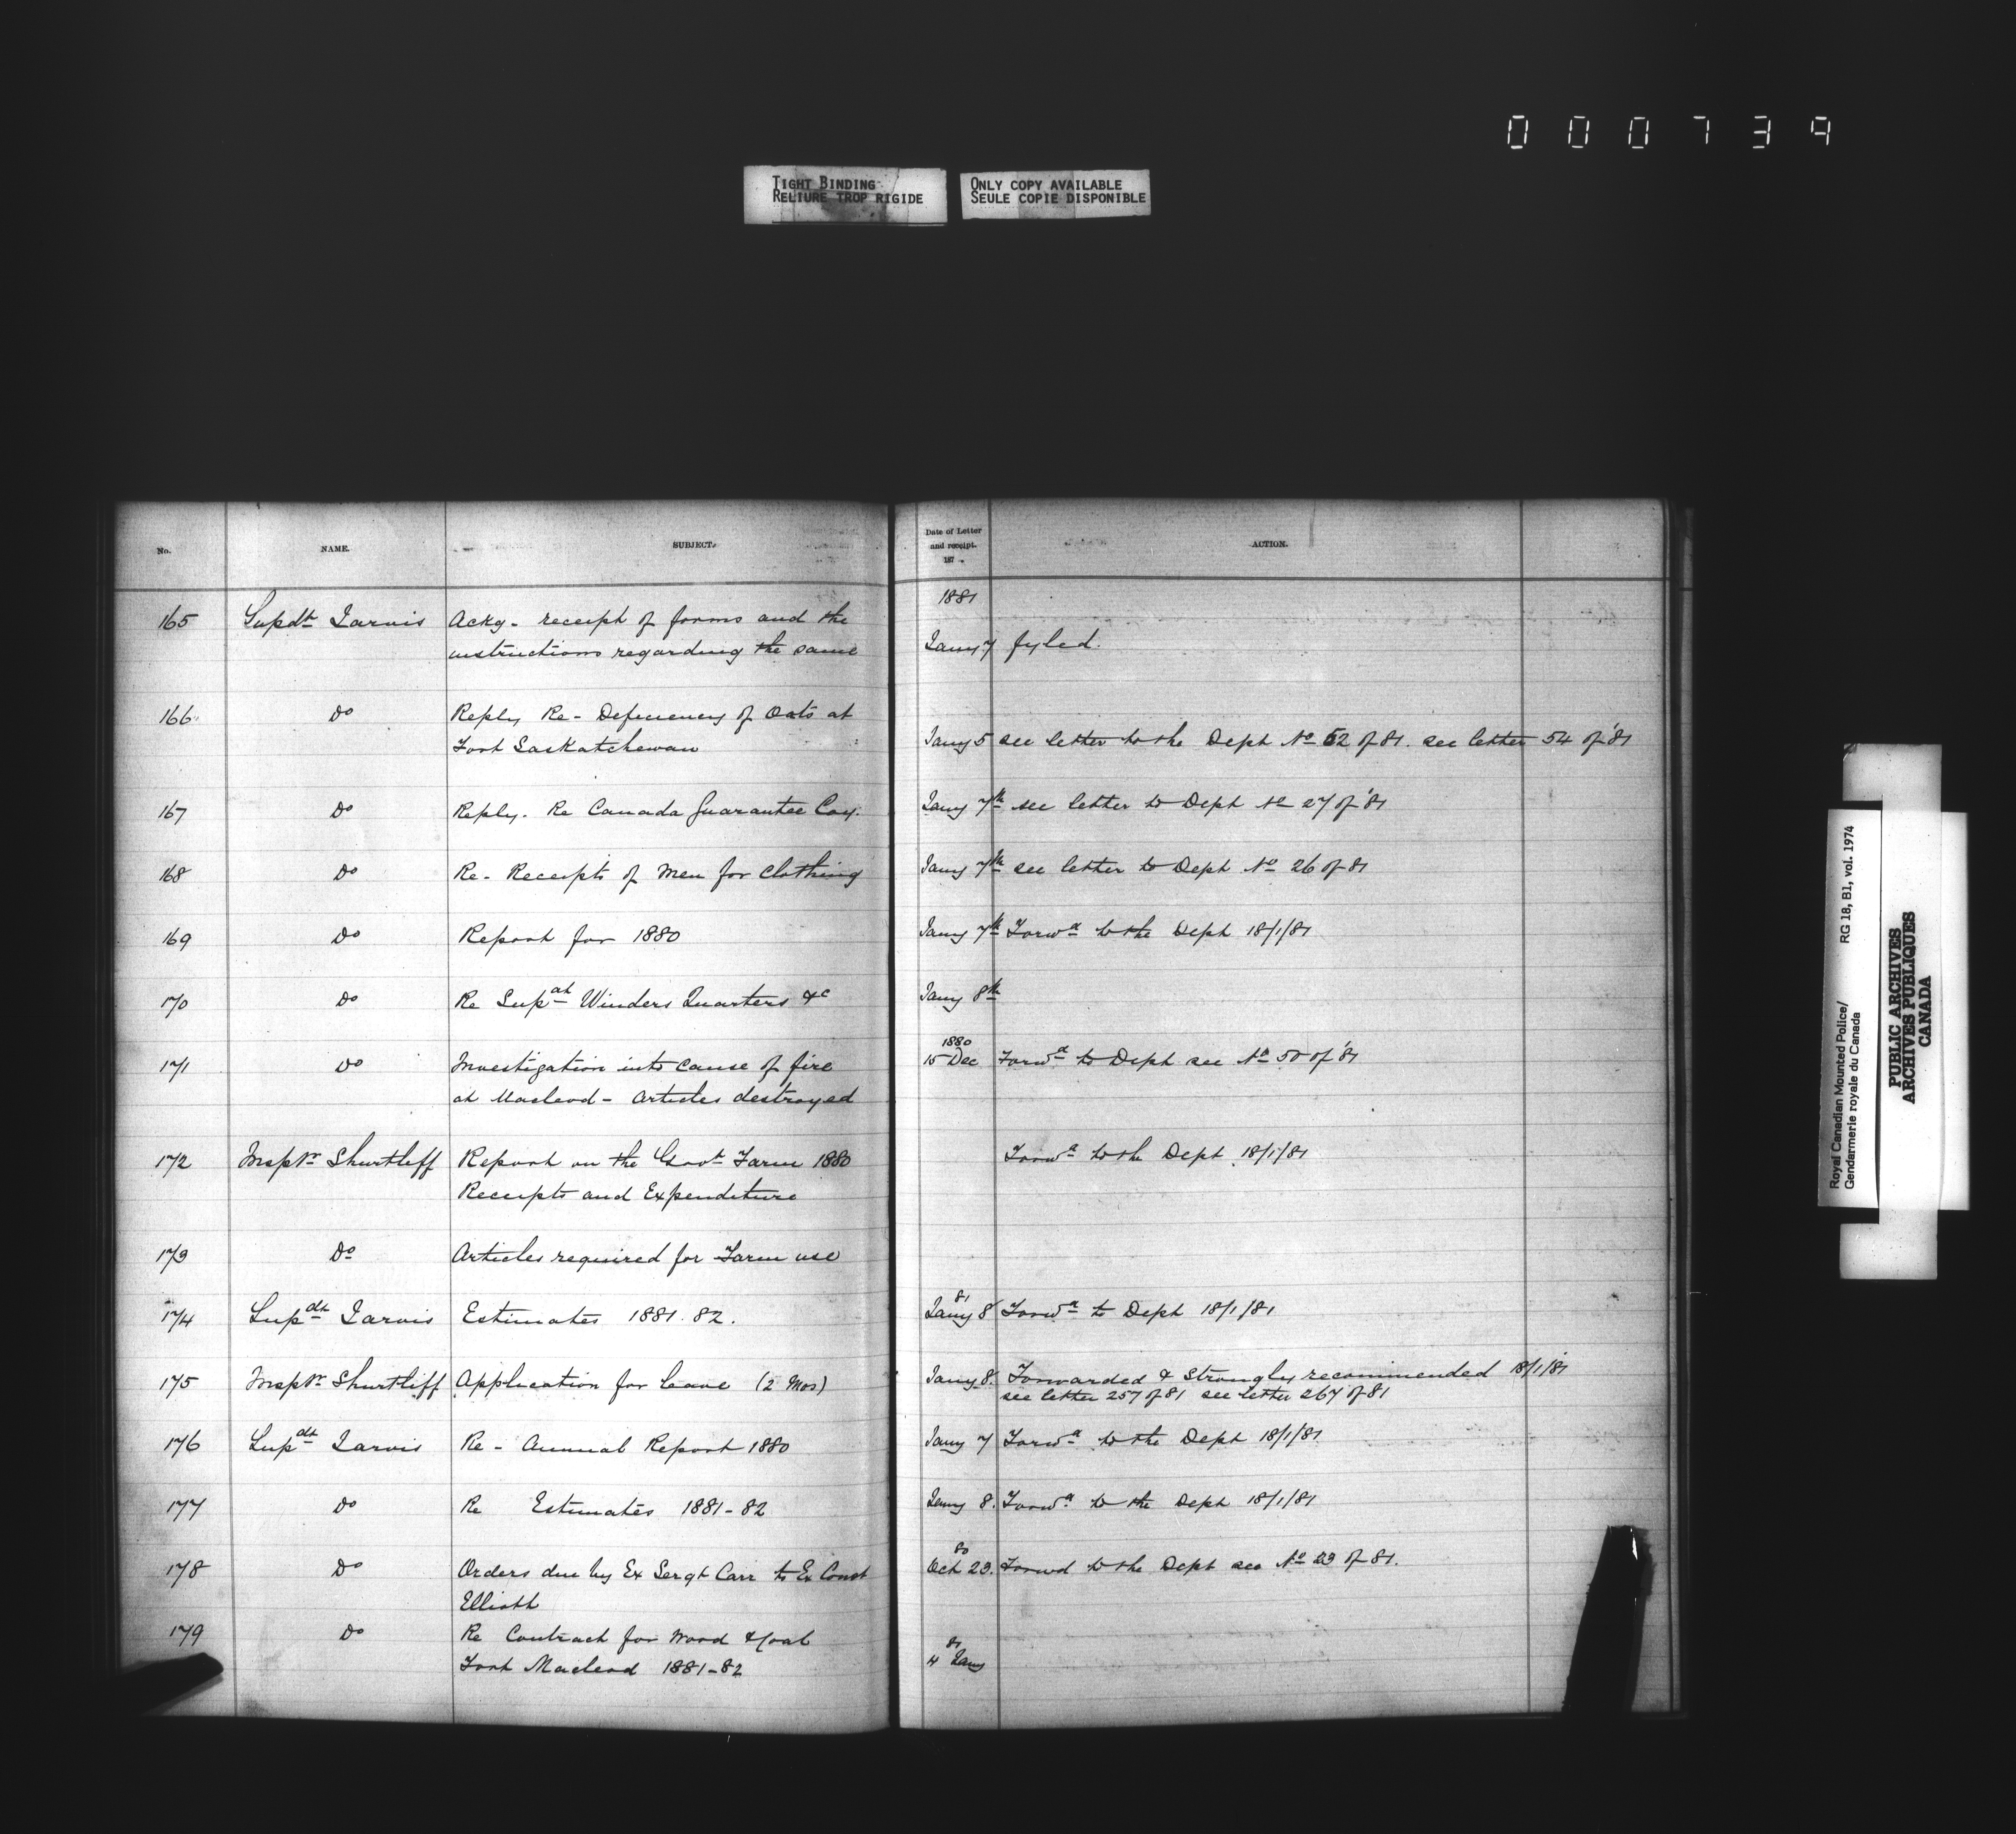 000739
TIGHT BINDING
RELIURE TROP RIGIDE
ONLY COPY AVAILABLE
SEULE COPIE DISPONIBLE
No. NAME. SUBJECT. Date of Letter and receipt. 187 . ACTION.
1881
165 Supdt Jarvis Ackg - receipt of forms and the
instructions regarding the same Jany 7 fyled.
166 Do Reply Re - Deficiency of Oats at
Fort Saskatchewan Jany 5 see letter to the Dept No 52 of 81. see letter 54 of '81
167 Do Reply. Re Canada Guarantee Coy. Jany 7th see letter to Dept No 27 of '81
168 Do Re - Receipts of Men for Clothing Jany 7th see letter to Dept No 26 of 81
169 Do Report for 1880 Jany 7th Forwd to the Dept 18/1/81
170 Do Re Supdt Winders Quarters &c Jany 8th
1880
171 Do Investigation into cause of fire 15 Dec Forwd to Dept see No 50 of '81
at Macleod - Articles destroyed
172 Inspr Shurtliff Report on the Govt Farm 1880 Forwd to the Dept 18/1/81
Receipts and Expenditure
173 Do Articles required for Farm use
81
174 Supdt Jarvis Estimates 1881.82. Jany 8 Forwd to Dept 18/1/81
175 Inspr Shurtliff Application for Leave (2 Mos) Jany 8. Forwarded & Strongly recommended 18/1/81
see letter 257 of 81 see letter 267 of 81
176 Supdt Jarvis Re - Annual Report 1880 Jany 7 Forwd to the Dept 18/1/81
177 Do Re Estimates 1881-82 Jany 8. Forwd to the Dept 18/1/81
80
178 Do Orders due by Ex Sergt Carr to Ex Const Oct 23. Forwd to the Dept see No 23 of 81.
Elliott
179 Do Re Contract for Wood & Coal
81
Fort Macleod 1881-82 4 Jany
Royal Canadian Mounted Police/ RG 18, B1, vol. 1974
Gendarmerie royale du Canada
PUBLIC ARCHIVES
ARCHIVES PUBLIQUES
CANADA